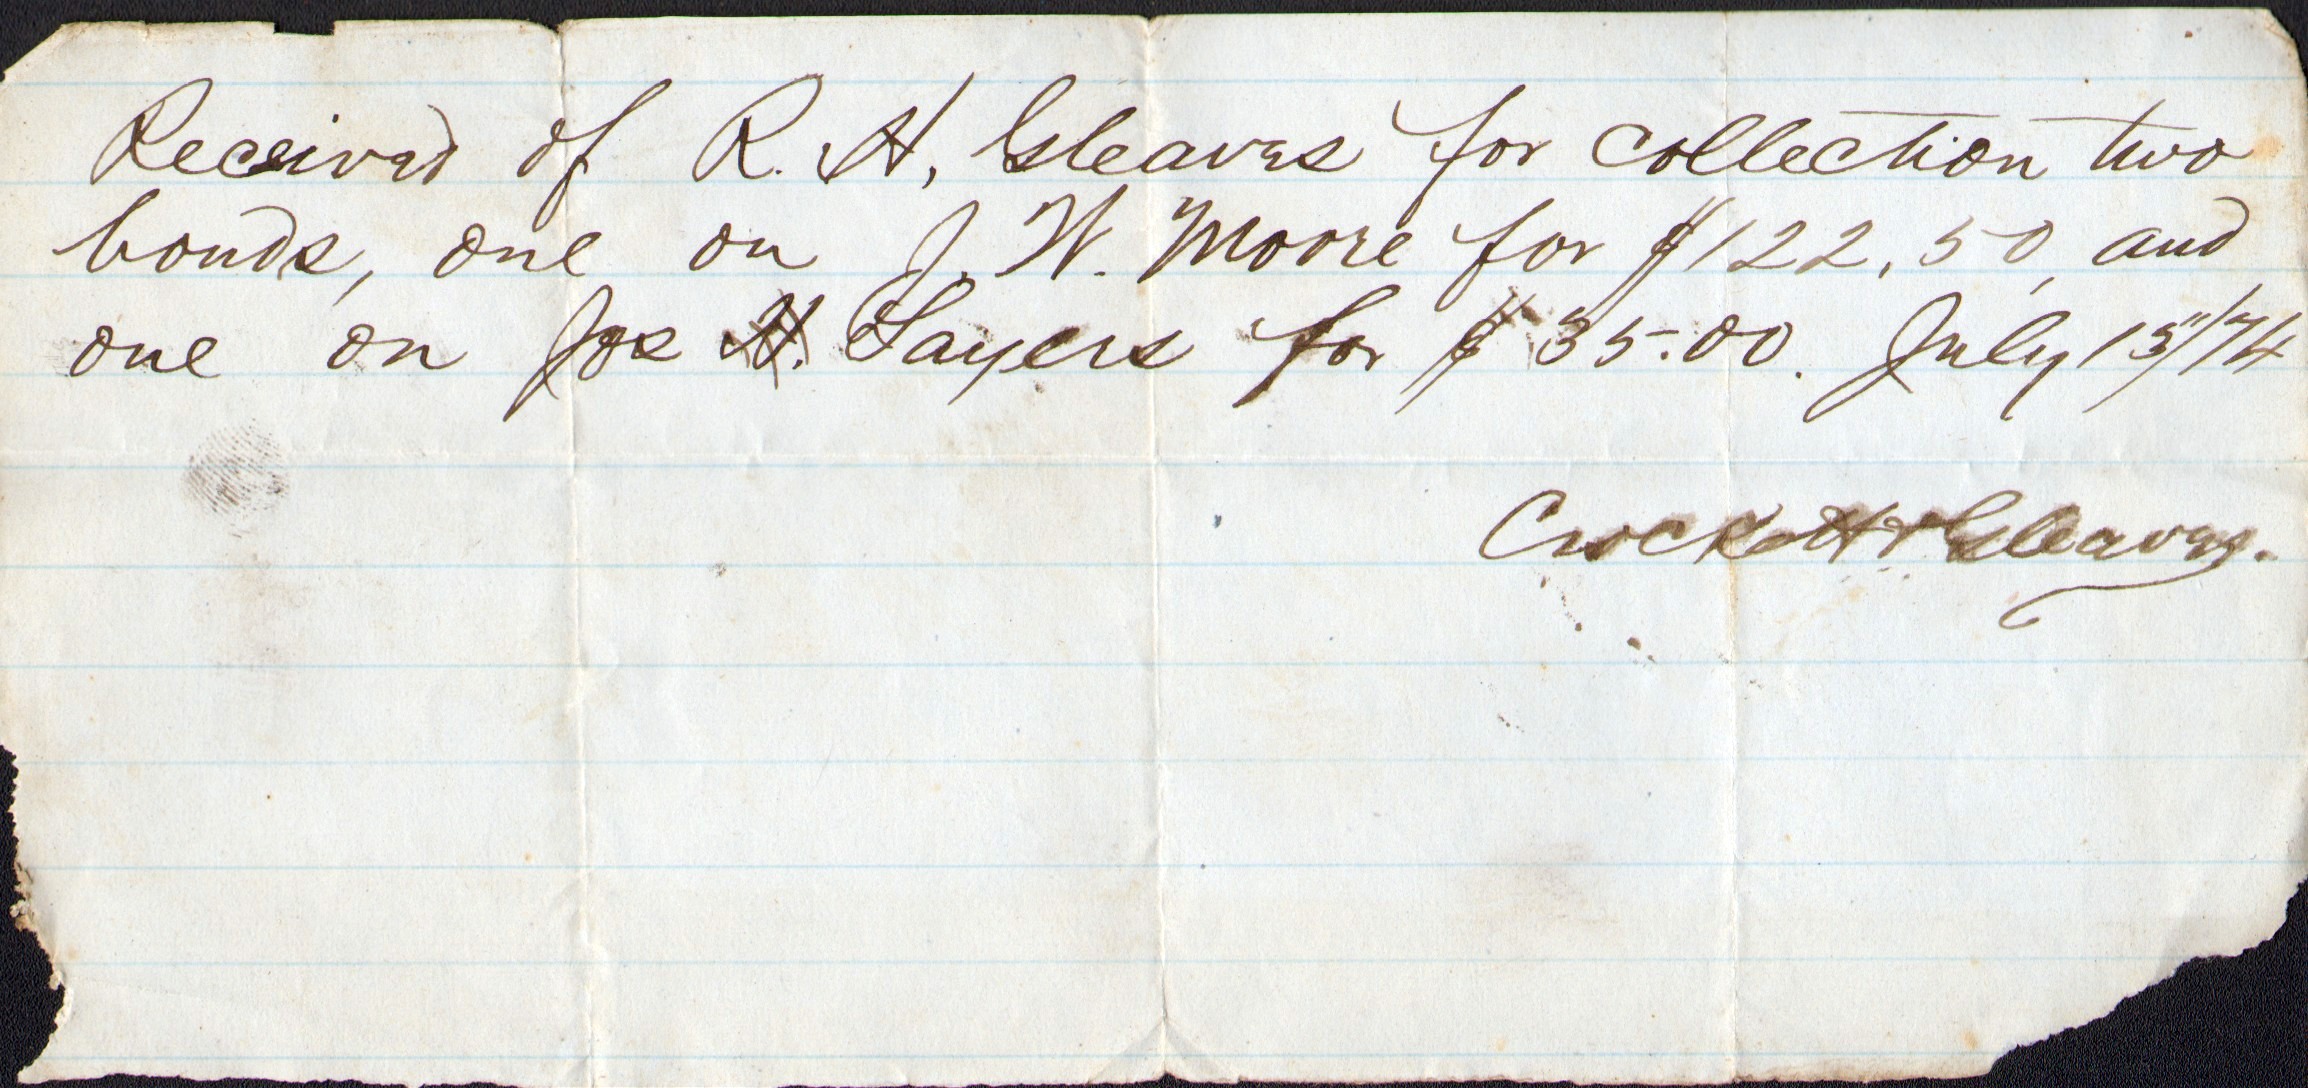 Received of R. H. Gleaves for collection two
bonds, one on J. W. Moore for $122.50, and
one on Jos Sayers for $35.00. July 13"/74
Crockett & Gleaves.